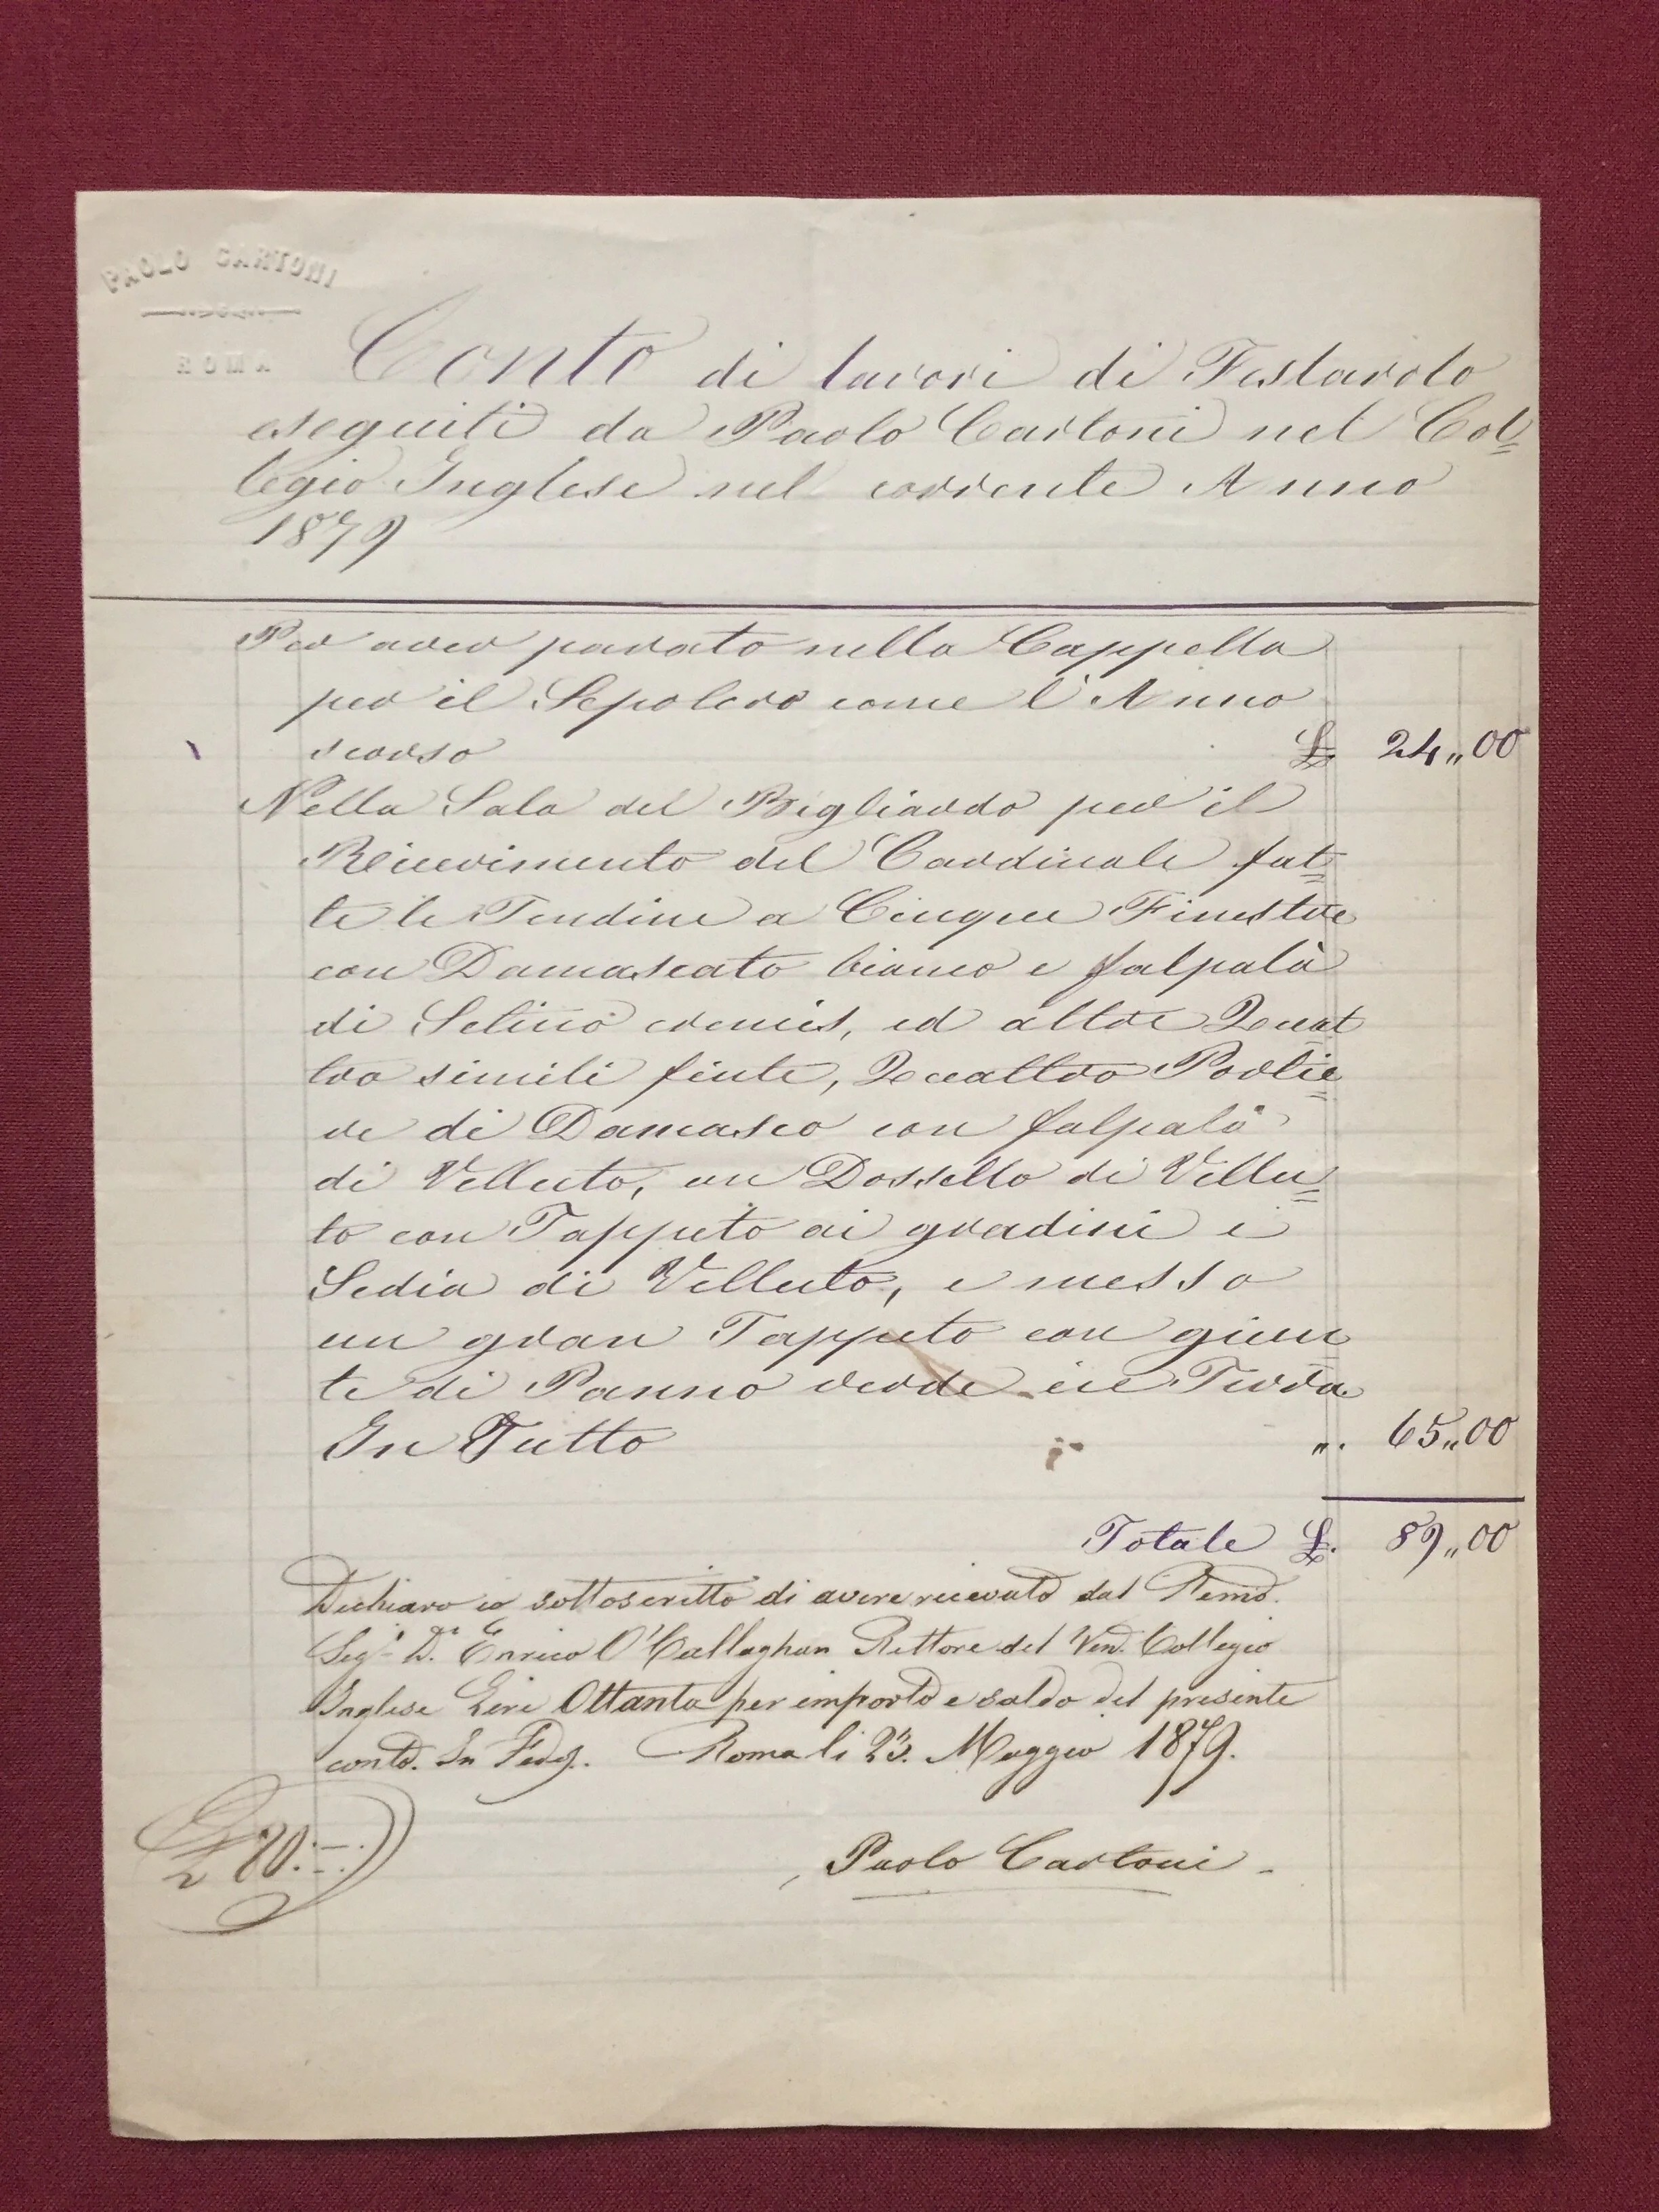 PAOLO CARTONI
ROMA
Conto di lavori di Festarolo
eseguiti da Paolo Cartoni nel Col=
legio Inglese nel corrente Anno
1879
Per aver parato nella Cappella
per il Sepolcro come l'Anno
scorso £. 24,,00
Nella Sala del Bigliardo per il
Ricevimento del Cardinale fat=
te le Tendine a Cinque Finestre
con Damascato bianco e falpalà
di Setino cremis, ed altre Quat
tro simili finte, Quattro Portie=
re di Damasco con falpalà
di Velluto, un Dossello di Vellu=
to con Tappeto ai gradini e
Sedia di Velluto, e messo
un gran Tappeto con giun
te di Panno verde in Terra
In Tutto ,,. 65,,00
Totale £. 89,,00
Dichiaro io sottoscritto di avere ricevuto dal Remo.
Sigr. D. Enrico O'Callaghan Rettore del Ven. Collegio
Inglese Lire Ottanta per importo e saldo del presente
conto. In Fede. Roma li 23. Maggio 1879.
£ 80.=.
Paolo Cartoni